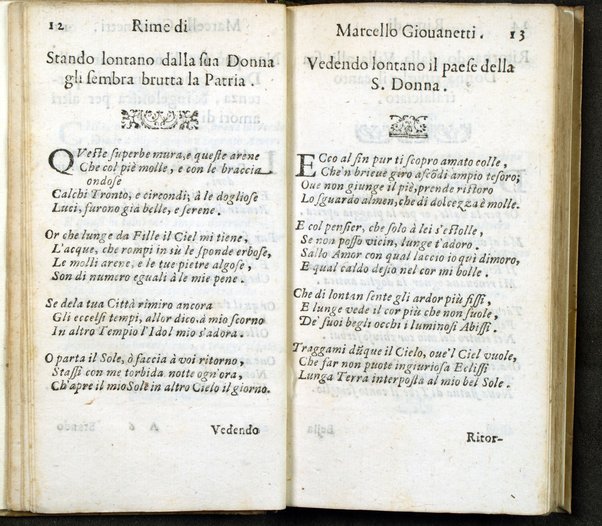 12 Rime di
Stando lontano dalla sua Donna
gli sembra brutta la Patria.
QVeste superbe mura, e queste arene
Che col piè molle, e con le braccia
ondose
Calchi Tronto, e circondi, à le dogliose
Luci, furono già belle, e serene.
Or che lunge da Fille il Ciel mi tiene,
L'acque, che rompi in sù le sponde erbose,
Le molli arene, e le tue pietre algose,
Son di numero eguali à le mie pene.
Se dela tua Città rimiro ancora
Gli eccelsi tempi, allor dico, à mio scorno
In altro Tempio l'Idol mio s'adora.
O parta il Sole, ò faccia à voi ritorno,
Stassi con me torbida notte ogn'ora,
Ch'apre il mio Sole in altro Cielo il giorno.
Vedendo
Marcello Giouanetti. 13
Vedendo lontano il paese della
S. Donna.
ECco al fin pur ti scopro amato colle,
Che'n brieue giro ascõdi ampio tesoro;
Oue non giunge il piè, prende ristoro
Lo sguardo almen, che di dolcezza è molle.
E col pensier, che solo à lei s'estolle,
Se non posso vicin, lunge t'adoro.
Sallo Amor con qual laccio io qui dimoro,
E qual caldo desio nel cor mi bolle.
Che di lontan sente gli ardor più fissi,
E lunge vede il cor più che non suole,
De' suoi begli occhi i luminosi Abissi.
Traggami dũque il Cielo, oue'l Ciel vuole,
Che far non puote ingiuriosa Eclissi
Lunga Terra interposta al mio bel Sole.
Ritor-